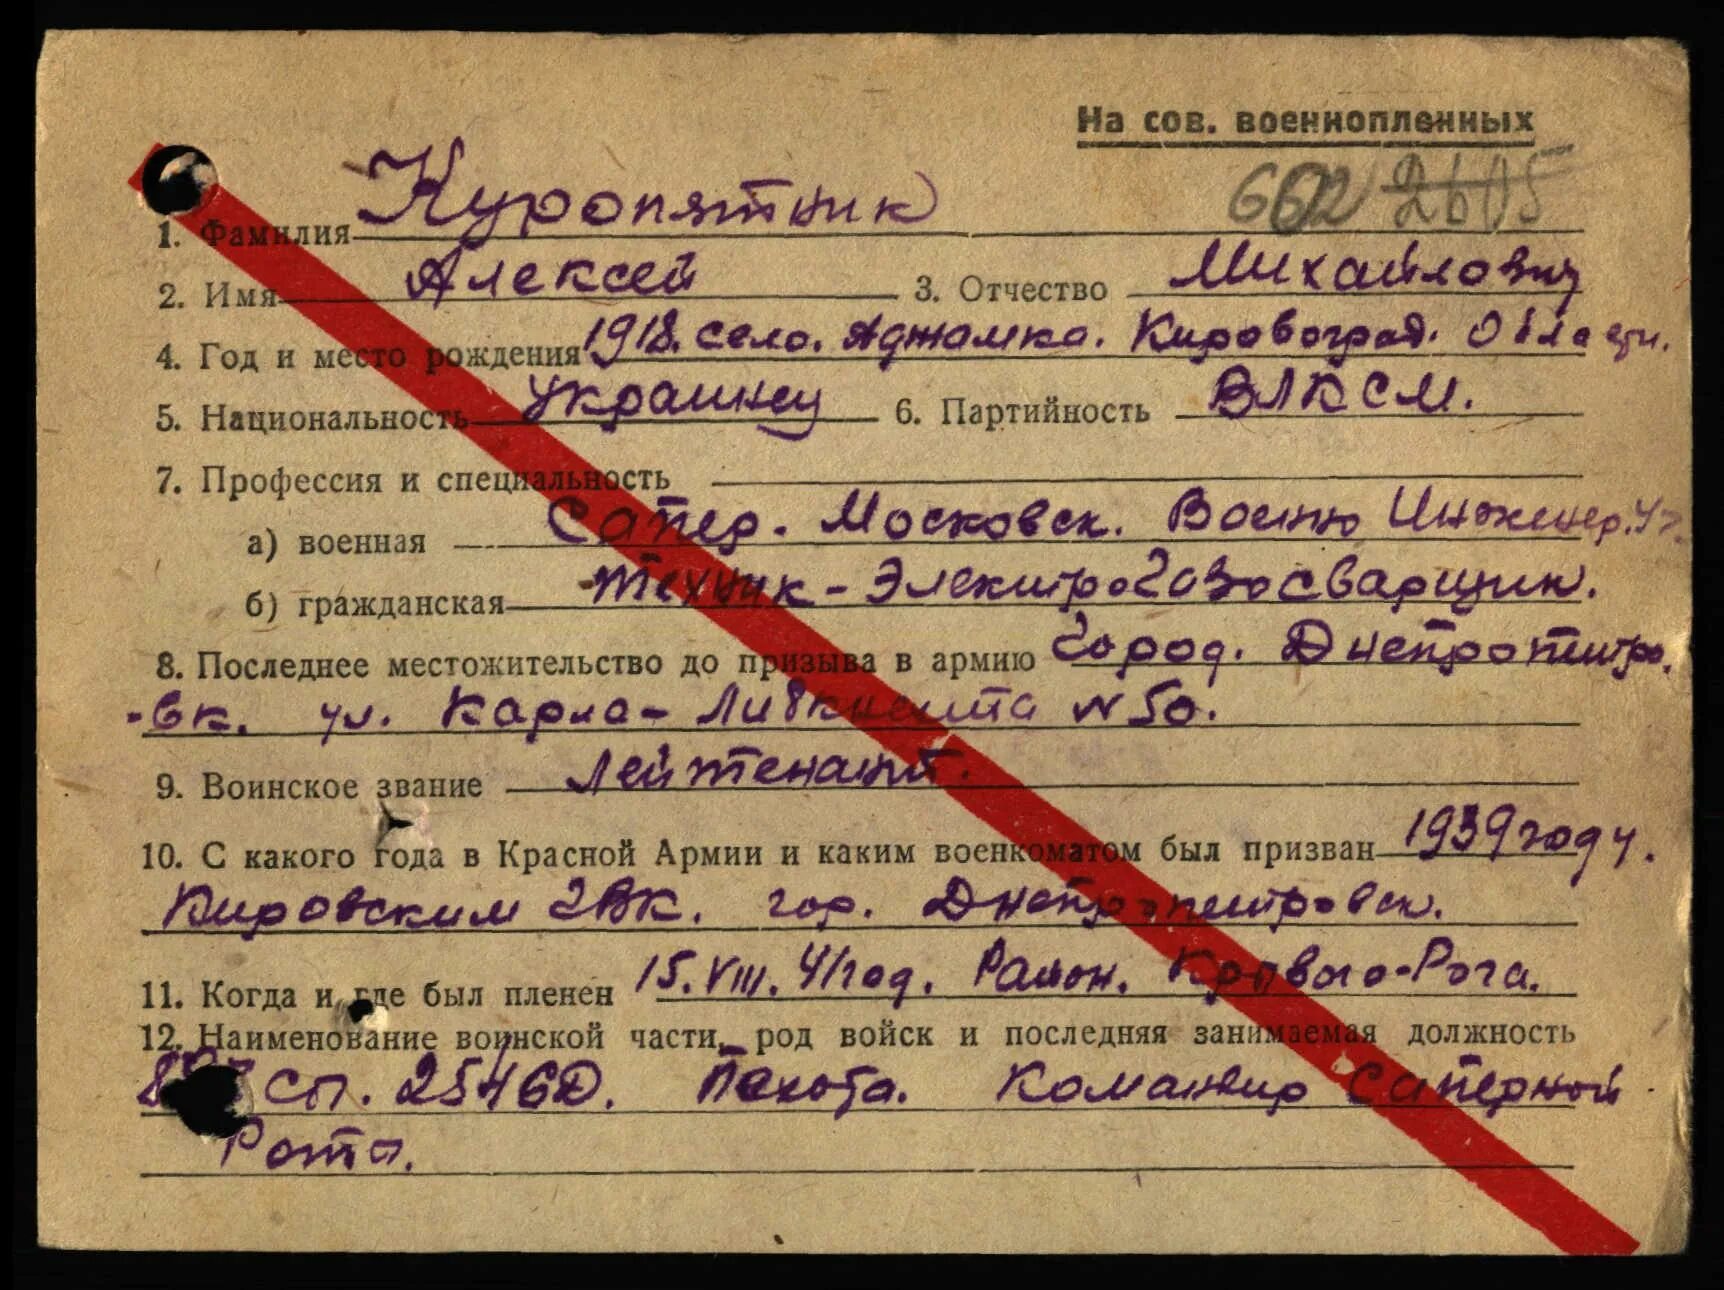 На сов. военнопленных
662 2605
1. Фамилия Куропятник
2. Имя Алексей 3. Отчество Михайлович
4. Год и место рождения 1918. село. Аджамка. Кировоград. Области.
5. Национальность украинец 6. Партийность ВЛКСМ.
7. Профессия и специальность
а) военная Сапер. Московск. Военно Инженер. Уч.
б) гражданская техник - Электрогазосварщик.
8. Последнее местожительство до призыва в армию город. Днепропетро.
-вк. ул. Карла - Либкнехта N 50.
9. Воинское звание Лейтенант.
10. С какого года в Красной Армии и каким военкоматом был призван 1939 году.
Кировским ГВК. гор. Днепропетровск.
11. Когда и где был пленен 15.VIII.41 год. Район. Кривого-Рога.
12. Наименование воинской части, род войск и последняя занимаемая должность
СП. Пехота. Командир Саперной
Роты.